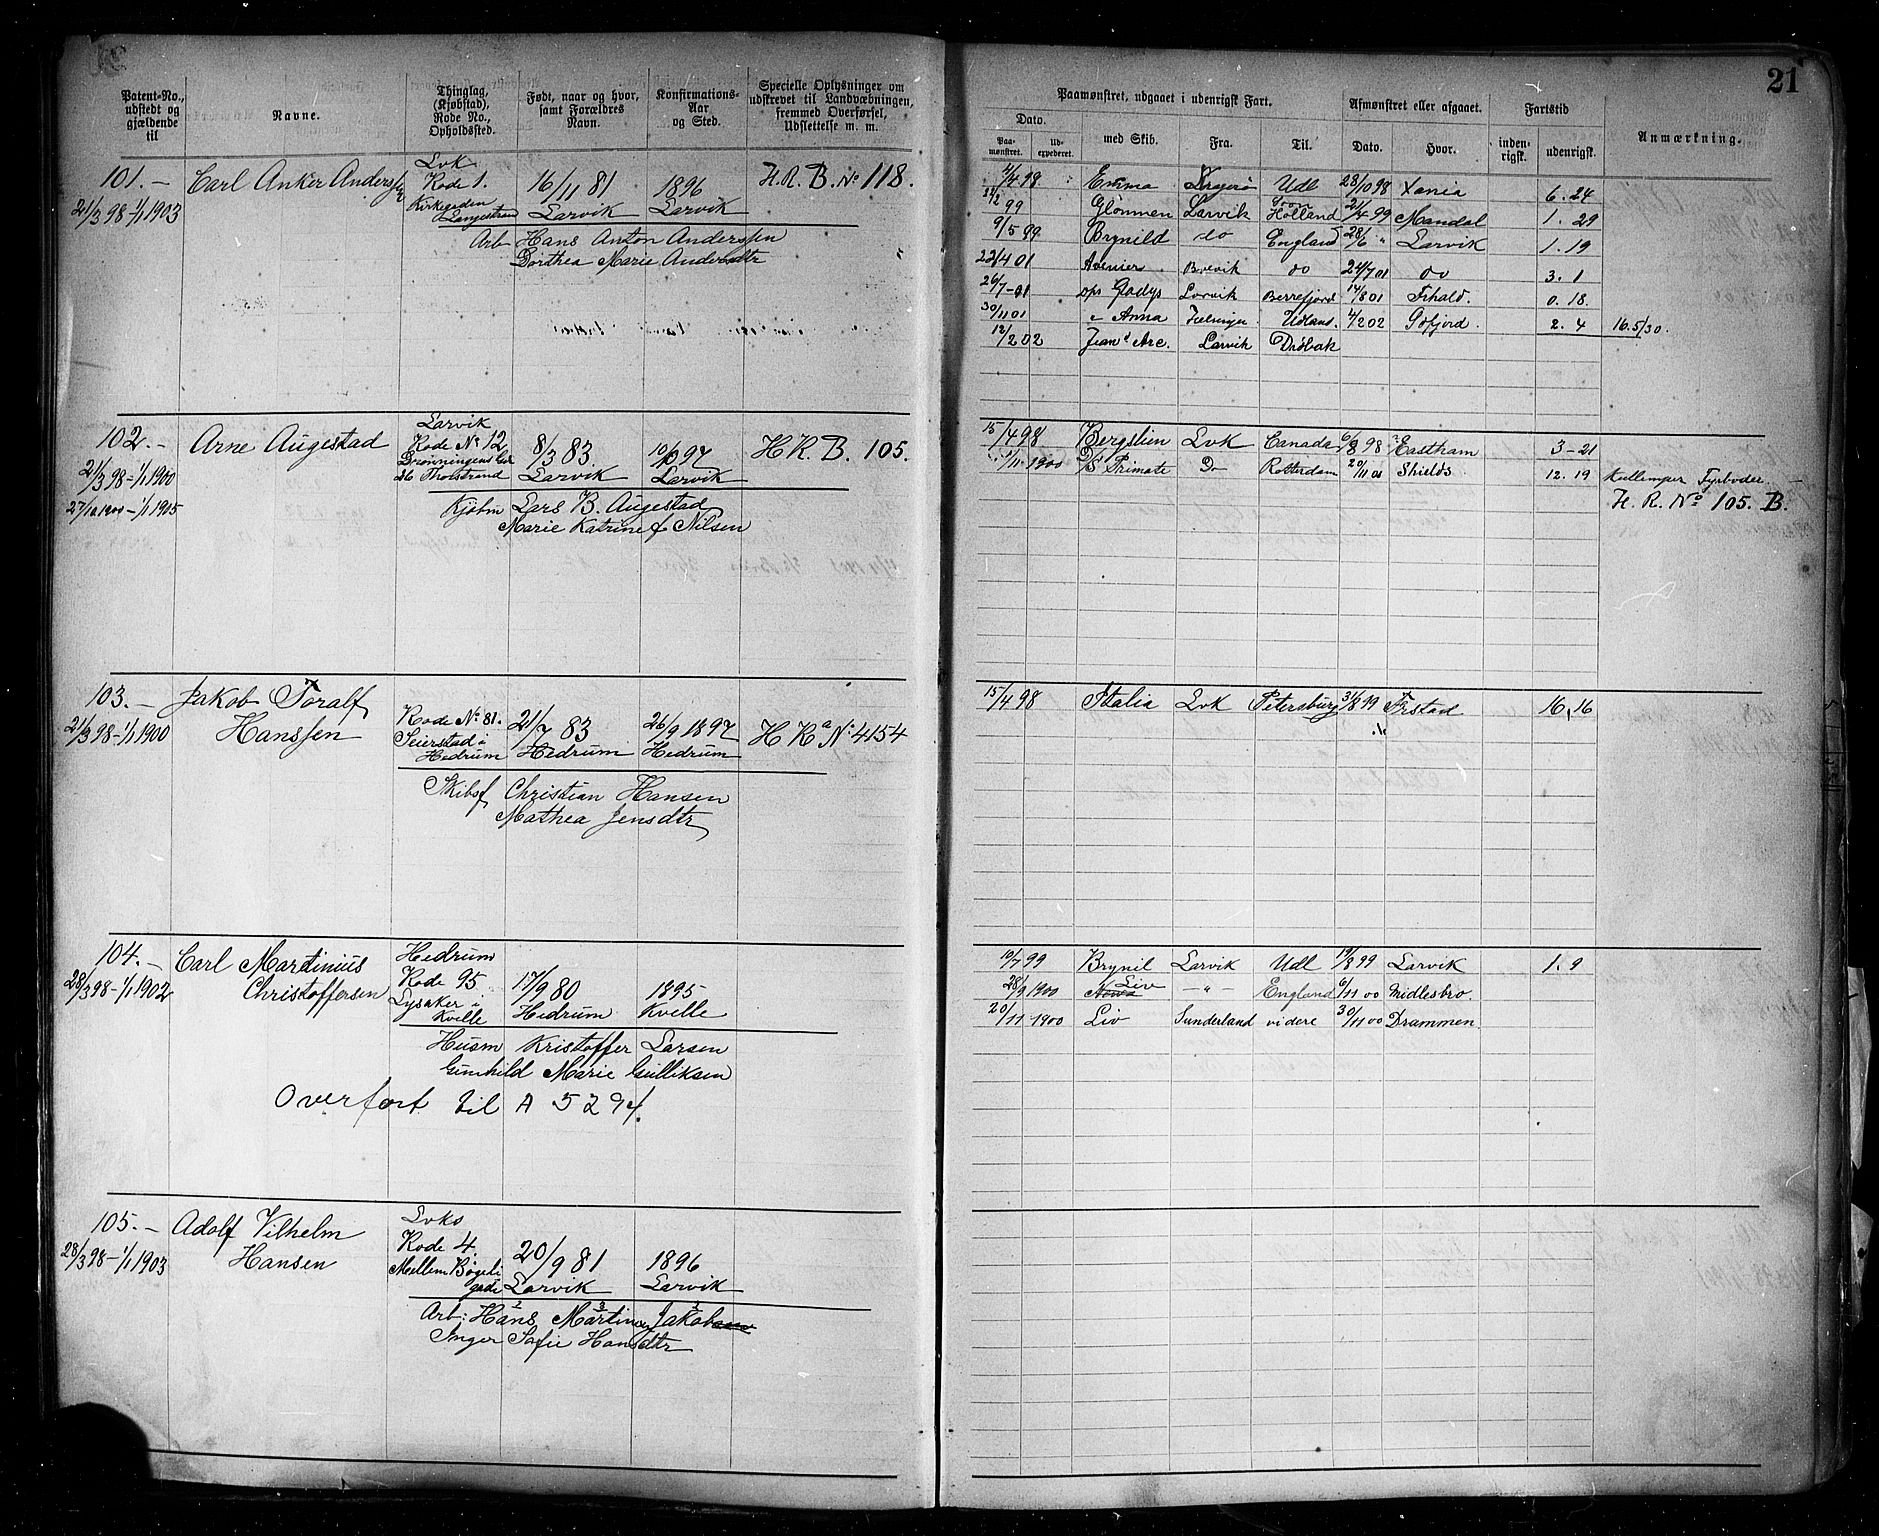 21
Patent-No., udstedt og gjældende til
Navne.
Thinglag, (Kjøbstad), Rode No., Opholdssted.
Født, naar og hvor, samt Forældres Navn.
Konfirmations-Aar og Sted.
Specielle Oplysninger om udskrevet til Landvæbningen, fremmed Overførsel, Udslettelse m. m.
Paamønstret, udgaaet i udenrigsk Fart.
Afmønstret eller afgaaet.
Fartstid
Anmærkning.
Dato.
Paa-mønstret.
Ud-expederet.
med Skib.
Fra.
Til.
Dato.
Hvor.
inden-rigsk.
udenrigsk.
101.-
21/3 98-1/1 1903
Carl Anker Anderssen
Lvk
Rode 1.
Kirkegaden
Langestrand
16/11 81
Larvik
1896
Larvik
H.R. B. No 118.
Arb Hans Anton Anderssen
Dorthea Marie Andersdtr
4/4 98 Emma Kragerø Udl 28/10 98 Xania 6. 24
12/2 99 Glommen Larvik Holland 21/4 99 Mandal 1. 29
9/5 99 Brynild do England 28/6 " Larvik 1. 19
22/4 01 Brevik do 24/7 01 do 3. 1
26/7-01 Gladys Larvik 14/8 01 Frhald. 0. 18
30/11 01 " Anna Helsingør Udland. 4/2 02 Sdfjord. 2. 4 16.5/30.
12/2 02 Jean d'Arc. Larvik Drøbak
102.-
21/3 98-1/1 1900
27/10 1900-1/1 1905
Arne Augestad
Larvik
Rode No 12
Dronningens Gd
Tholstrand
8/3 83
Larvik
10/9 97
Larvik
H.R. B. 105.
Kjøbm Lars B. Augestad
Marie Katrine f. Nilsen
15/4 98 Bergslien Lvk Canada 6/8 98 Eastham 3-21
1/11-1900 D/S Primate Do Rotterdam 20/11 01 Shields. 12. 19
Kullemper Fyrbøder.
H. R. No 105. B.
103.-
21/3 98-1/1 1900
Jakob Toralf
Hanssen
Rode No 81.
Seierstad i
Hedrum
21/7 83
Hedrum
26/9 1897
Hedrum
H R a No 4154
Skibsf Christian Hansen
Mathea Jensdtr
15/4 98 Italia Lvk Petersburg 31/8 99 Frstad 16, 16
104.-
28/3 98-1/1 1902
Carl Martinius
Christoffersen
Hedrum
Rode 95
Lysaker i
Kvelle
17/9 80
Hedrum
1895
Kvelle
Husm Kristoffer Larsen
Gunhild Marie Gulliksen
Overført til A 5294.
10/7 99 Brynil Larvik Udl 19/8 99 Larvik 1. 9
28/9 1900 Liv -"- England 6/11 00 Midlesbro.
20/11 1900 Liv Sunderland videre 30/11 00 Drammen
105.-
28/3 98-1/1 1903
Adolf Vilhelm
Hansen
Lvks
Rode 4.
Mellem Bøgeli
gade
20/9 81
Larvik
1896
Larvik
Arb: Hans Martin Jakobsen
Inger Sofie Hansdtr